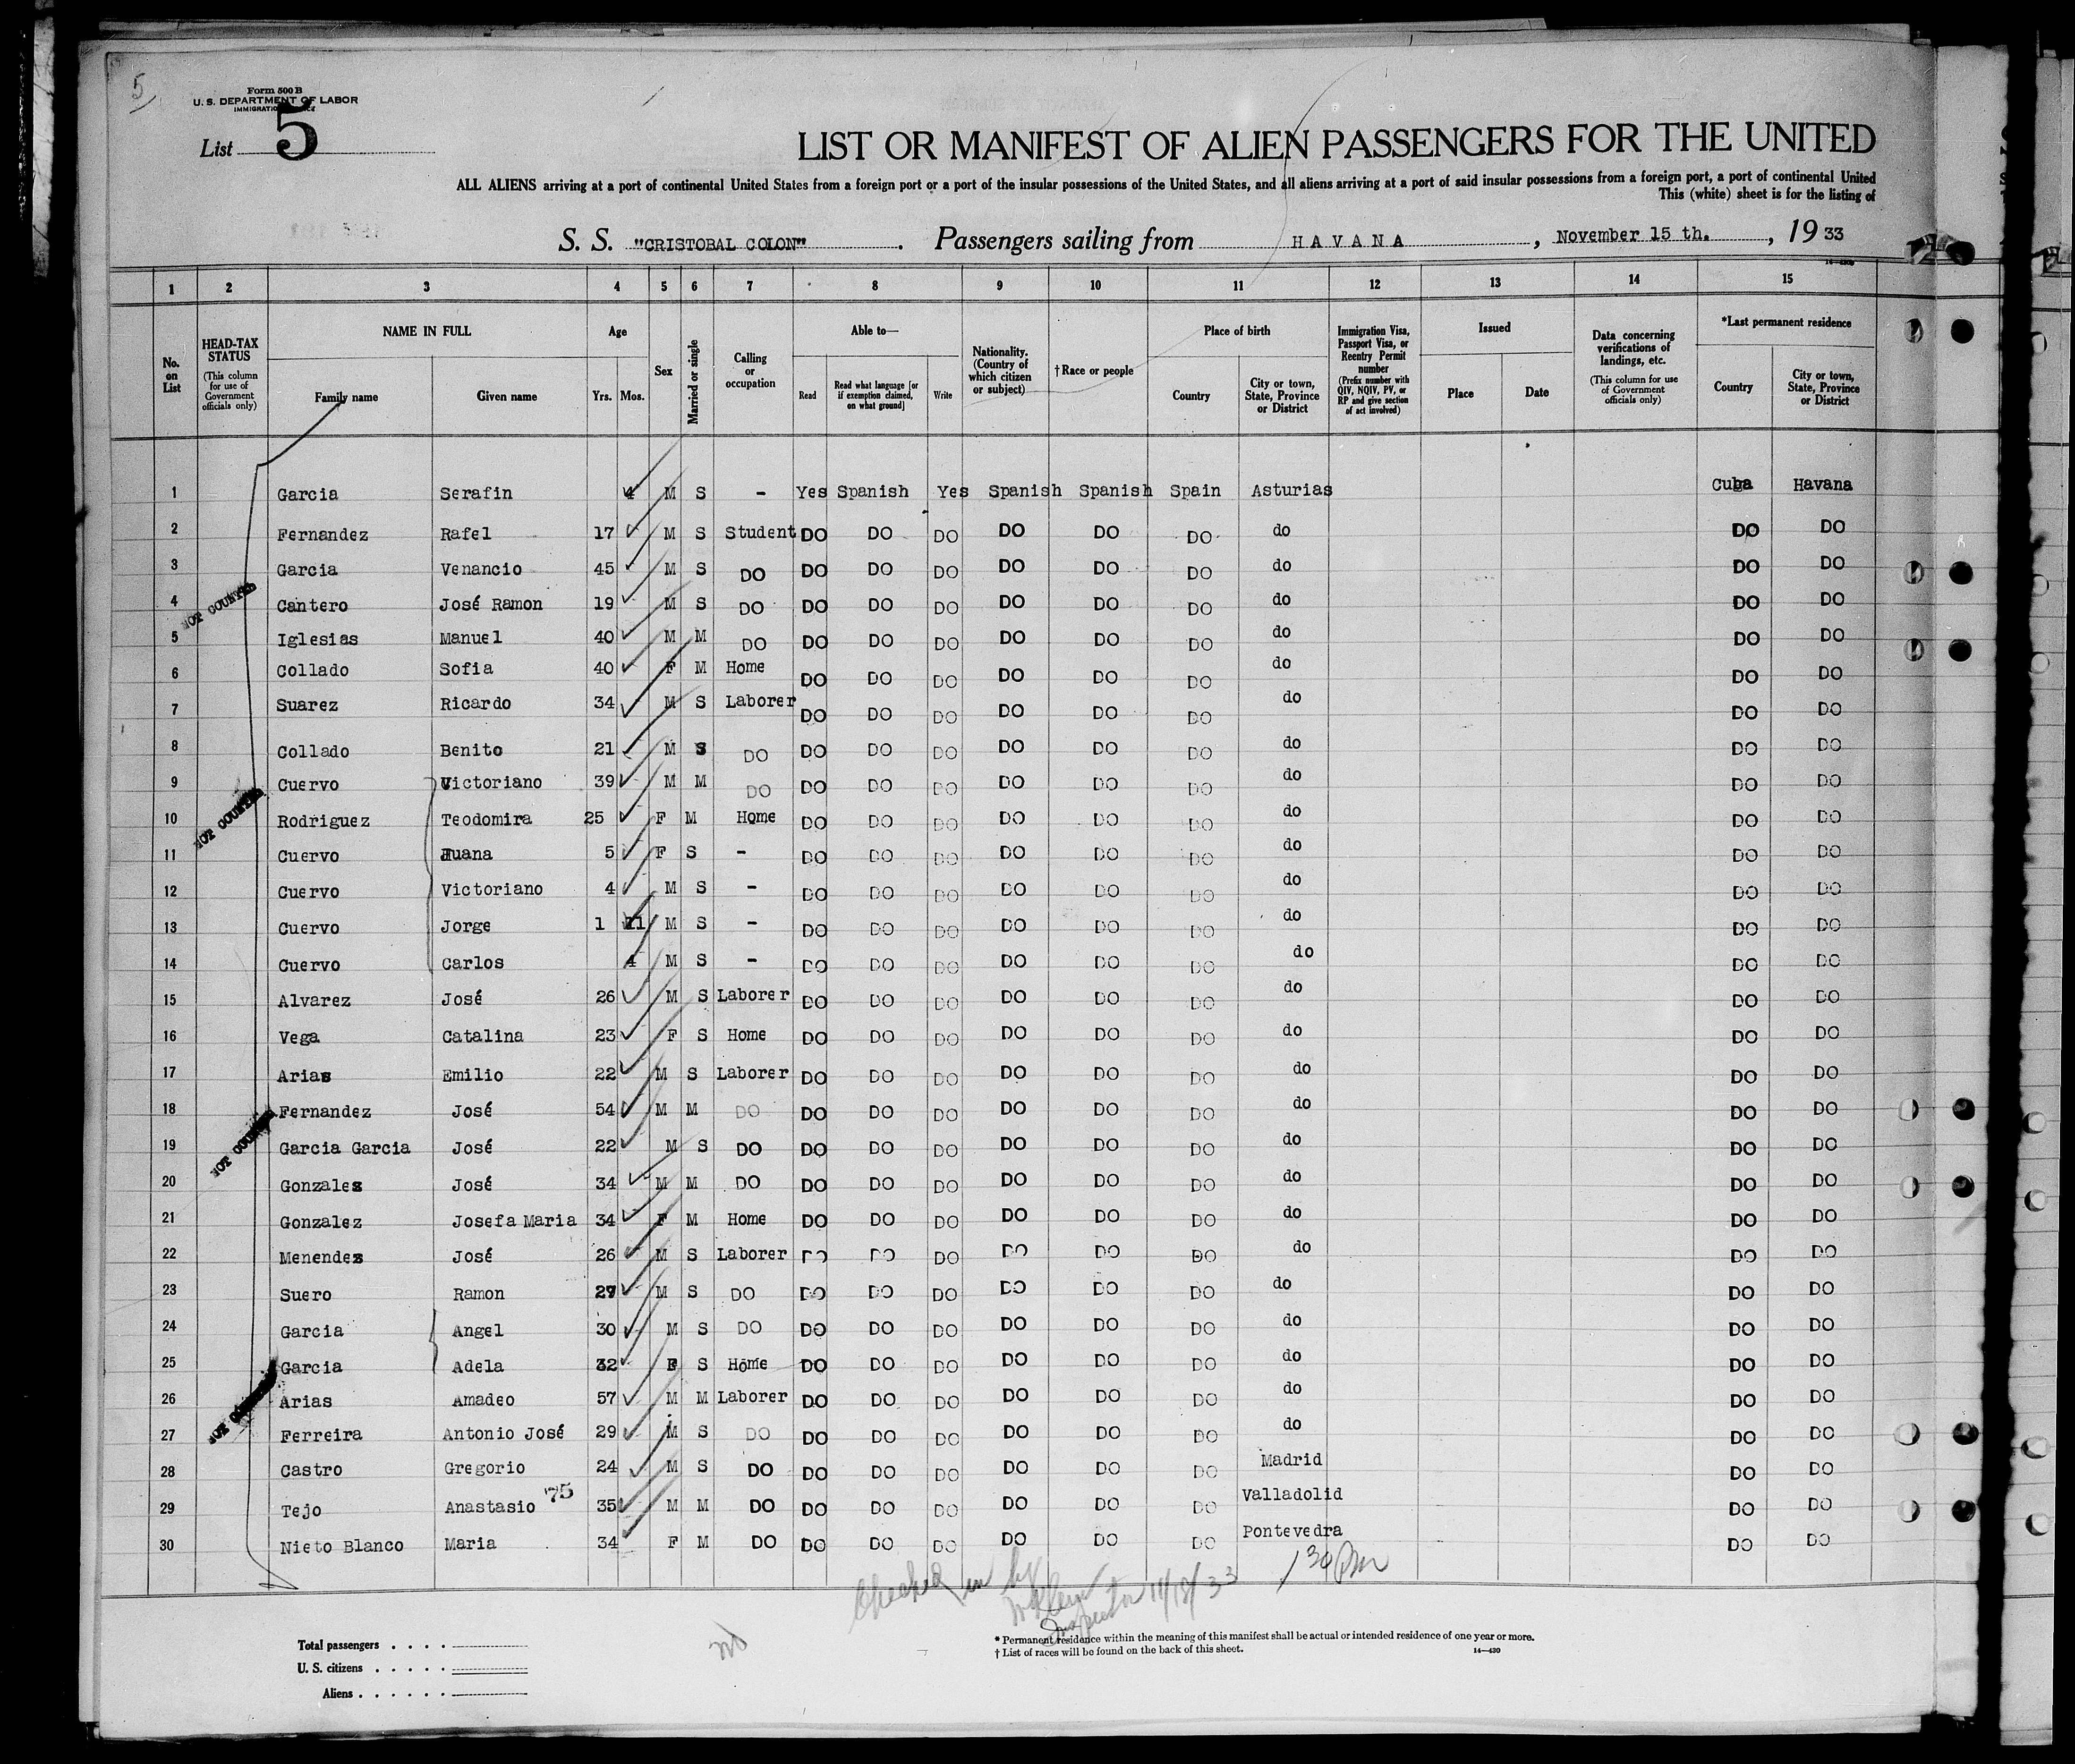 5
Form 500 B
U. S. DEPARTMENT OF LABOR
IMMIGRATION SERVICE
List 5
LIST OR MANIFEST OF ALIEN PASSENGERS FOR THE UNITED
ALL ALIENS arriving at a port of continental United States from a foreign port or a port of the insular possessions of the United States, and all aliens arriving at a port of said insular possessions from a foreign port, a port of continental United
This (white) sheet is for the listing of
S. S. "CRISTOBAL COLON". Passengers sailing from HAVANA, November 15 th., 19 33
1 2 3 4 5 6 7 8 9 10 11 12 13 14 15
No. on List
HEAD-TAX STATUS (This column for use of Government officials only)
NAME IN FULL Family name Given name
Age Yrs. Mos.
Sex
Married or single
Calling or occupation
Able to— Read Read what language [or if exemption claimed, on what ground] Write
Nationality. (Country of which citizen or subject)
†Race or people
Place of birth Country City or town, State, Province or District
Immigration Visa, Passport Visa, or Reentry Permit number (Prefix number with QIV, NQIV, PV, or RP and give section of act involved)
Issued Place Date
Data concerning verifications of landings, etc. (This column for use of Government officials only)
*Last permanent residence Country City or town, State, Province or District
1 Garcia Serafin 4 M S - Yes Spanish Yes Spanish Spanish Spain Asturias Cuba Havana
2 Fernandez Rafel 17 M S Student DO DO DO DO DO DO do DO DO
3 Garcia Venancio 45 M S DO DO DO DO DO DO DO do DO DO
4 Cantero José Ramon 19 M S DO DO DO DO DO DO DO do DO DO
5 Iglesias Manuel 40 M M DO DO DO DO DO DO DO do DO DO
6 Collado Sofia 40 F M Home DO DO DO DO DO DO do DO DO
7 Suarez Ricardo 34 M S Laborer DO DO DO DO DO DO do DO DO
8 Collado Benito 21 M S DO DO DO DO DO DO DO do DO DO
9 Cuervo Victoriano 39 M M DO DO DO DO DO DO DO do DO DO
10 Rodriguez Teodomira 25 F M Home DO DO DO DO DO DO do DO DO
11 Cuervo Juana 5 F S - DO DO DO DO DO DO do DO DO
12 Cuervo Victoriano 4 M S - DO DO DO DO DO DO do DO DO
13 Cuervo Jorge 1 11 M S - DO DO DO DO DO DO do DO DO
14 Cuervo Carlos 4 M S - DO DO DO DO DO DO do DO DO
15 Alvarez José 26 M S Laborer DO DO DO DO DO DO do DO DO
16 Vega Catalina 23 F S Home DO DO DO DO DO DO do DO DO
17 Arias Emilio 22 M S Laborer DO DO DO DO DO DO do DO DO
18 Fernandez José 54 M M DO DO DO DO DO DO DO do DO DO
19 Garcia Garcia José 22 M S DO DO DO DO DO DO DO do DO DO
20 Gonzalez José 34 M M DO DO DO DO DO DO DO do DO DO
21 Gonzalez Josefa Maria 34 F M Home DO DO DO DO DO DO do DO DO
22 Menendez José 26 M S Laborer DO DO DO DO DO DO do DO DO
23 Suero Ramon 27 M S DO DO DO DO DO DO DO do DO DO
24 Garcia Angel 30 M S DO DO DO DO DO DO DO do DO DO
25 Garcia Adela 32 F S Home DO DO DO DO DO DO do DO DO
26 Arias Amadeo 57 M M Laborer DO DO DO DO DO DO do DO DO
27 Ferreira Antonio José 29 M S DO DO DO DO DO DO DO do DO DO
28 Castro Gregorio 24 M S DO DO DO DO DO DO DO Madrid DO DO
29 Tejo Anastasio 75 35 M M DO DO DO DO DO DO DO Valladolid DO DO
30 Nieto Blanco Maria 34 F M DO DO DO DO DO DO DO Pontevedra DO DO
NOT COUNTED
NOT COUNTED
NOT COUNTED
NOT
Checked in by
Inspector 11/18/33
1 30 PM
Total passengers
U. S. citizens
Aliens
* Permanent residence within the meaning of this manifest shall be actual or intended residence of one year or more.
† List of races will be found on the back of this sheet.
14—430